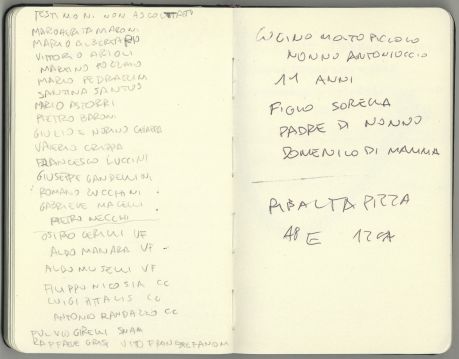 TESTIMONI NON ASCOLTATI
MARGHERITA MARONI
MARIO ALBERTARIO
VITTORIO ARIOLI
MARTINO
MARIO PEDRAZZINI
SANTINA SANTUS
MARIO ASTORRI
PIETRO BARONI
GIULIO E NORINO
VALERIO CRIPPA
FRANCESCO LUCCINI
GIUSEPPE GANDELLINI
ROMANO ZUCCHIANI
GABRIELE MACELLI
PIETRO NECCHI
OSIRO GERILLI VF
ALDO MANARA VF
ALDO MUSELLI VF
FILIPPO NICOSIA CC
LUIGI ATTALIS CC
ANTONIO RANDAZZO CC
FULVIO GIRELLI SNAM
RAFFAELE VITO FRANCESTEFANO
CUGINO MOLTO PICCOLO
NONNO ANTONIUCCIO
11 ANNI
FIGLIO SORELLA
PADRE DI NONNO
DOMENICO DI MAMMA
RIBALTA PIZZA
48 E 12